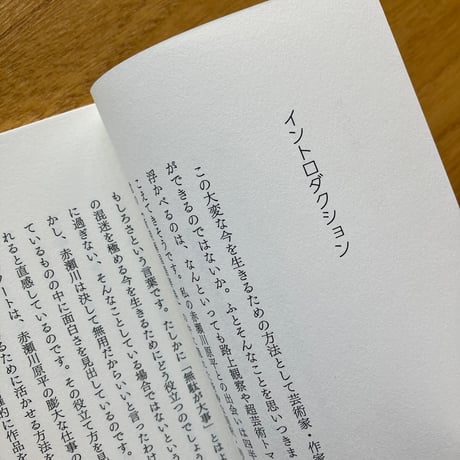 イントロダクション
この大変な今を生きるための方法として芸術家・作家
ができるのではないか。ふとそんなことを思いつきま
浮かべるのは、なんといっても路上観察や超芸術トマ
こえてきそうです。私の赤瀬川原平との出会いは四半
もしろさという言葉です。たしかに「無駄が大事」とはよ
の混迷を極める今を生きるためにどう役立つのでしょう
に過ぎない、そんなことしている場合ではないという
かし、赤瀬川は決して無用だからいいと言ったわけ
ているものの中に面白さを見出しているのです。
れると直感しているのです。その役立て方を見
赤瀬川原平の膨大な仕事の
るために活かせる方法を
的に作品を